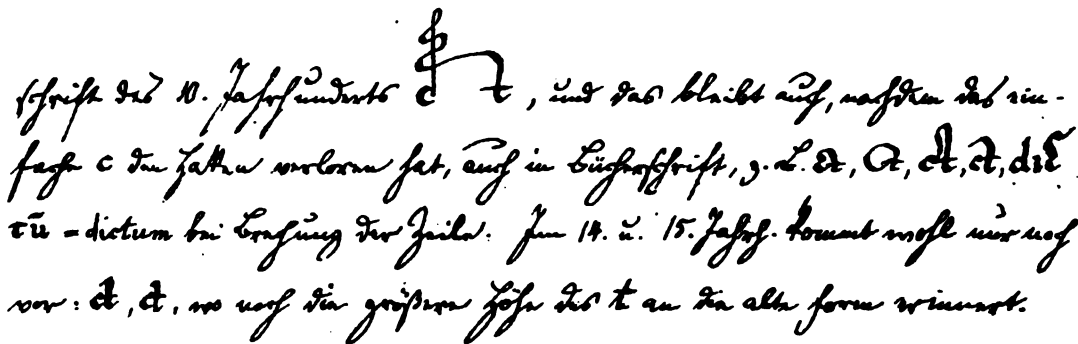 schrift des 10. Jahrhunderts c t, und das bleibt auch, nachdem das ein-
fache c den Hatten verloren hat, auch in Bücherschrift, z. B. ct, ct, ct, ct, dic
tū = dictum bei Brechung der Zeile. Im 14. u. 15. Jahrh. kommt wohl nur noch
vor: ct, ct, wo noch die größere Höhe des t an die alte Form erinnert.